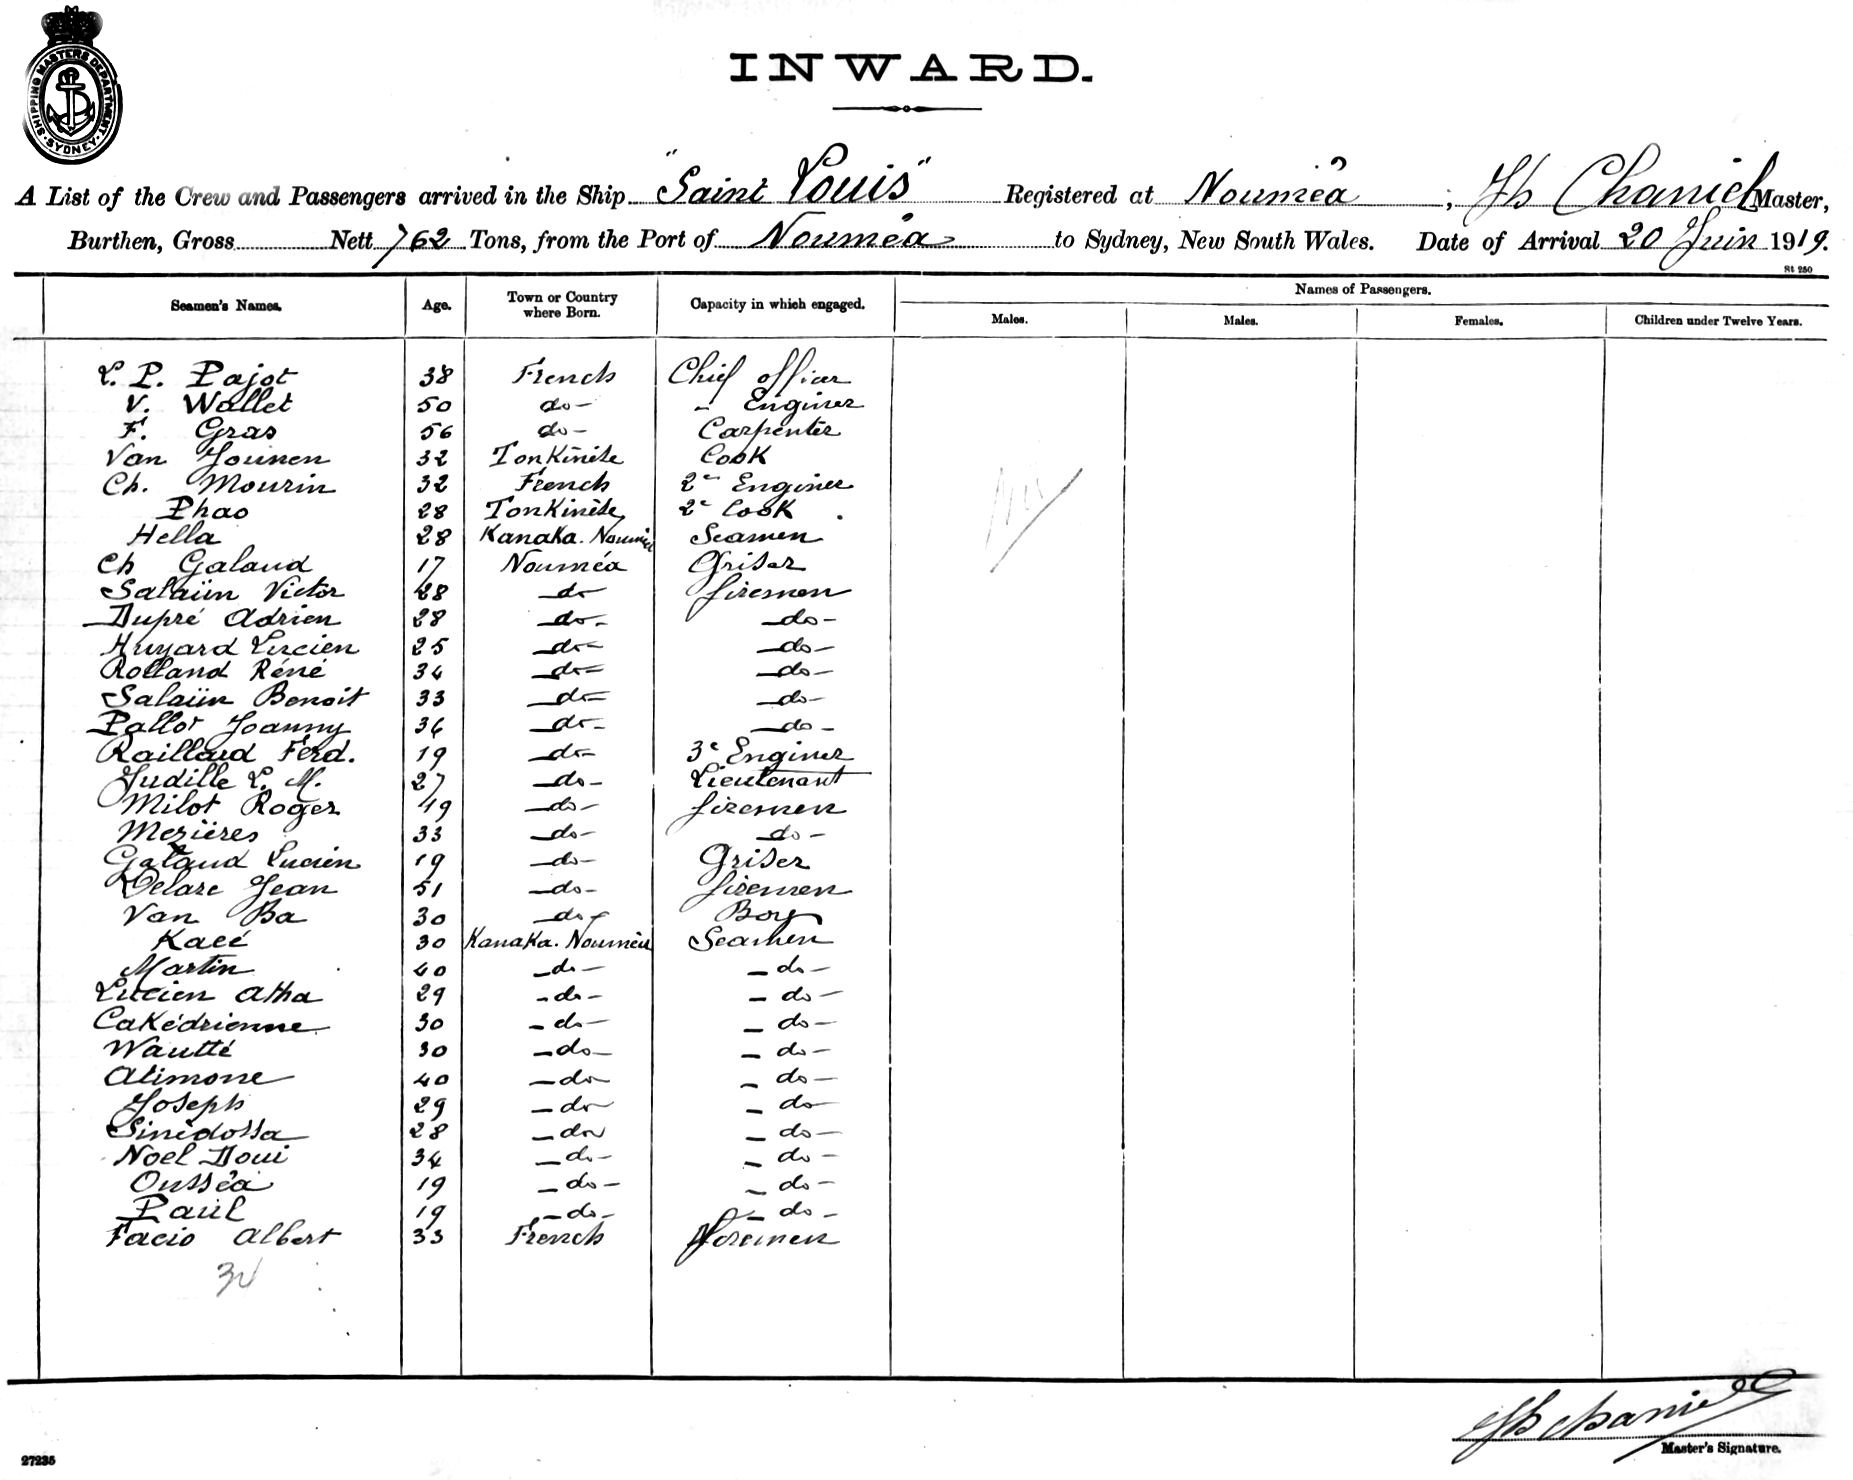 SHIPPING MASTERS DEPARTMENT · SYDNEY ·
INWARD.
A List of the Crew and Passengers arrived in the Ship "Saint Louis" Registered at Nouméa ; Jh Chaniel Master,
Burthen, Gross Nett 762 Tons, from the Port of Nouméa to Sydney, New South Wales. Date of Arrival 20 Juin 1919.
St 250
Seamen's Names. Age. Town or Country where Born. Capacity in which engaged. Names of Passengers.
Males. Males. Females. Children under Twelve Years.
L. P. Pajot 38 French Chief officer
V. Wallet 50 do - " Enginer
F. Gras 56 do - Carpenter
Van Jounen 32 TonKinése CooK
Ch. Mourin 32 French 2e Enginer
Phao 28 TonKinése 2e CooK
Hella 28 KanaKa. Nouméa Seamen
Ch Galaud 17 Nouméa Griser
Salaün Victor 28 do firemen
Dupré Adrien 28 do - do -
Huyard Lucien 25 do - do -
Rolland Réné 34 do - do -
Salaün Benoit 33 do - do -
Pallot Joanny 36 do - do -
Raillard Ferd. 19 do - 3e Enginer
Judille L. M. 27 do - Lieutenant
Milot Roger 49 do - firemen
Mezières 33 do - do -
Galaud Lucien 19 do - Griser
Delare Jean 51 do - firemen
Van Ba 30 do - Boy
Kacé 30 KanaKa. Nouméa Seamen
Martin 40 - do - - do -
Lucien Atha 29 - do - - do -
CaKédrienne 30 - do - - do -
Wautté 30 - do - - do -
Alimone 40 - do - - do -
Joseph 29 - do - - do
Sinédossa 28 - do - - do -
Noel Doui 34 - do - - do -
Ousséa 19 - do - - do -
Paul 19 - do - - do -
Facio Albert 33 French firemen
Jh Chaniel
Master's Signature.
27235